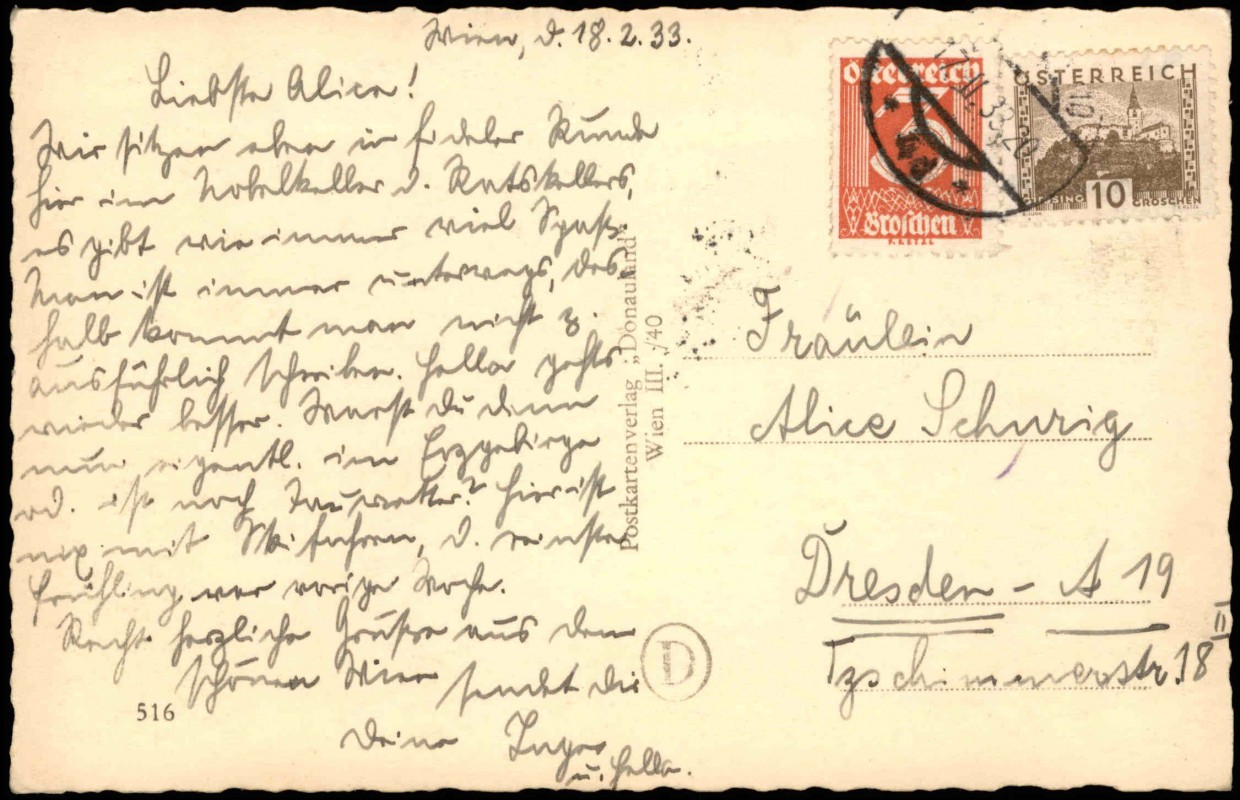 Wien, d. 18.2.33.
Liebste Alice!
Wir sitzen eben in fideler Runde
hier im Nobelkeller d. Ratskellers,
es gibt wie immer viel Spaß.
Man ist immer unterwegs, des
halb kommt man nicht z.
ausführlich schreiben. Hella gehts
wieder besser. Warst Du denn
nun eigentl. im Erzgebirge
od. ist noch Tauwetter? Hier ist
nix mit Ski fahren, d. reinste
Frühling war vorige Woche.
Recht herzliche Grüße aus dem
schönen Wien sendet die
Deine Inge
u. Hella.
516
Postkartenverlag „Donauland"
Wien III. /40
D
Österreich
Groschen
ÖSTERREICH
10
GROSCHEN
Fräulein
Alice Schurig
Dresden - A 19
Tzschimmerstr. 18 II